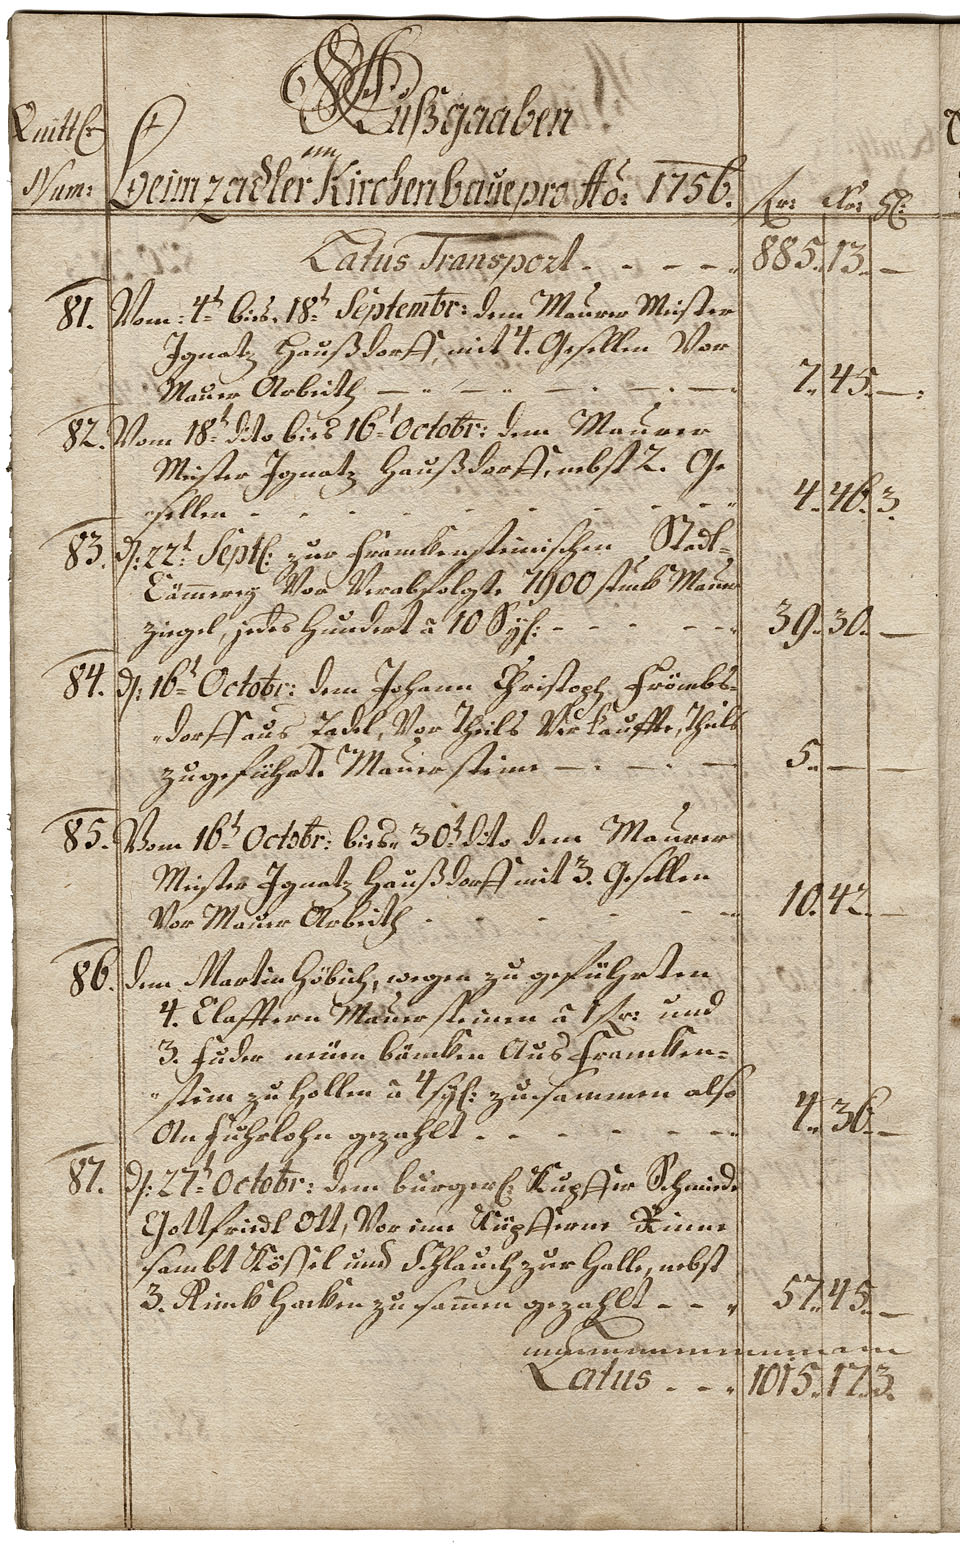 Außgaaben
Quitt:
Num:
beim zadler Kirchenbaue pro Ao: 1756.
Latus Transport. - - - - 885. 13. —
81. Vom 4t bies. 18t Septembr: dem Maurer Meister
Ignatz Haußdorff, mit 4. Gesellen Vor
Mauer Arbeith — — — 7. 45. —
82. Vom 18t dito bies 16t Octobr: dem Maurer
Meister Ignatz Haußdorff, nebst 2. Ge
sellen - - - - - 4. 46. 3.
83. d: 22t Septb: zur Franckensteinischen Stadt-
Cämmerey Vor Verabfolgte stück Mauer
ziegel, jedes Hundert â 10 Sgl: - - - - 39. 30. —
84. d: 16t Octobr: dem Johann Christoph Frömbs-
dorff aus Zadel, Vor Theils Verkauffte, Theils
zugeführte Mauersteine — . — . — 5. — —
85. Vom 16t Octobr: bies 30t dito dem Maurer
Meister Ignatz Haußdorff mit 3. Gesellen
Vor Mauer Arbeith - - - - - 10. 42. —
86. dem Martin wegen zu geführten
4. Clafftern Mauersteinen â 1 und
3. Fuder neuen Aus Francken-
stein zu hollen â 4 sgl: zusammen also
An Fuhrlohn gezahlt - - - - - 4. 36. —
87. d: 27t Octobr: dem burgerl: Kupffer Schmiede
Gottfriedt Ott, Vor eine Küpfferne Rinne
sambt Kössel und Schlauch zur Halle, nebst
3. Hacken zusamen gezahlt - - 57. 45. —
Latus - - - 1015. 17. 3.